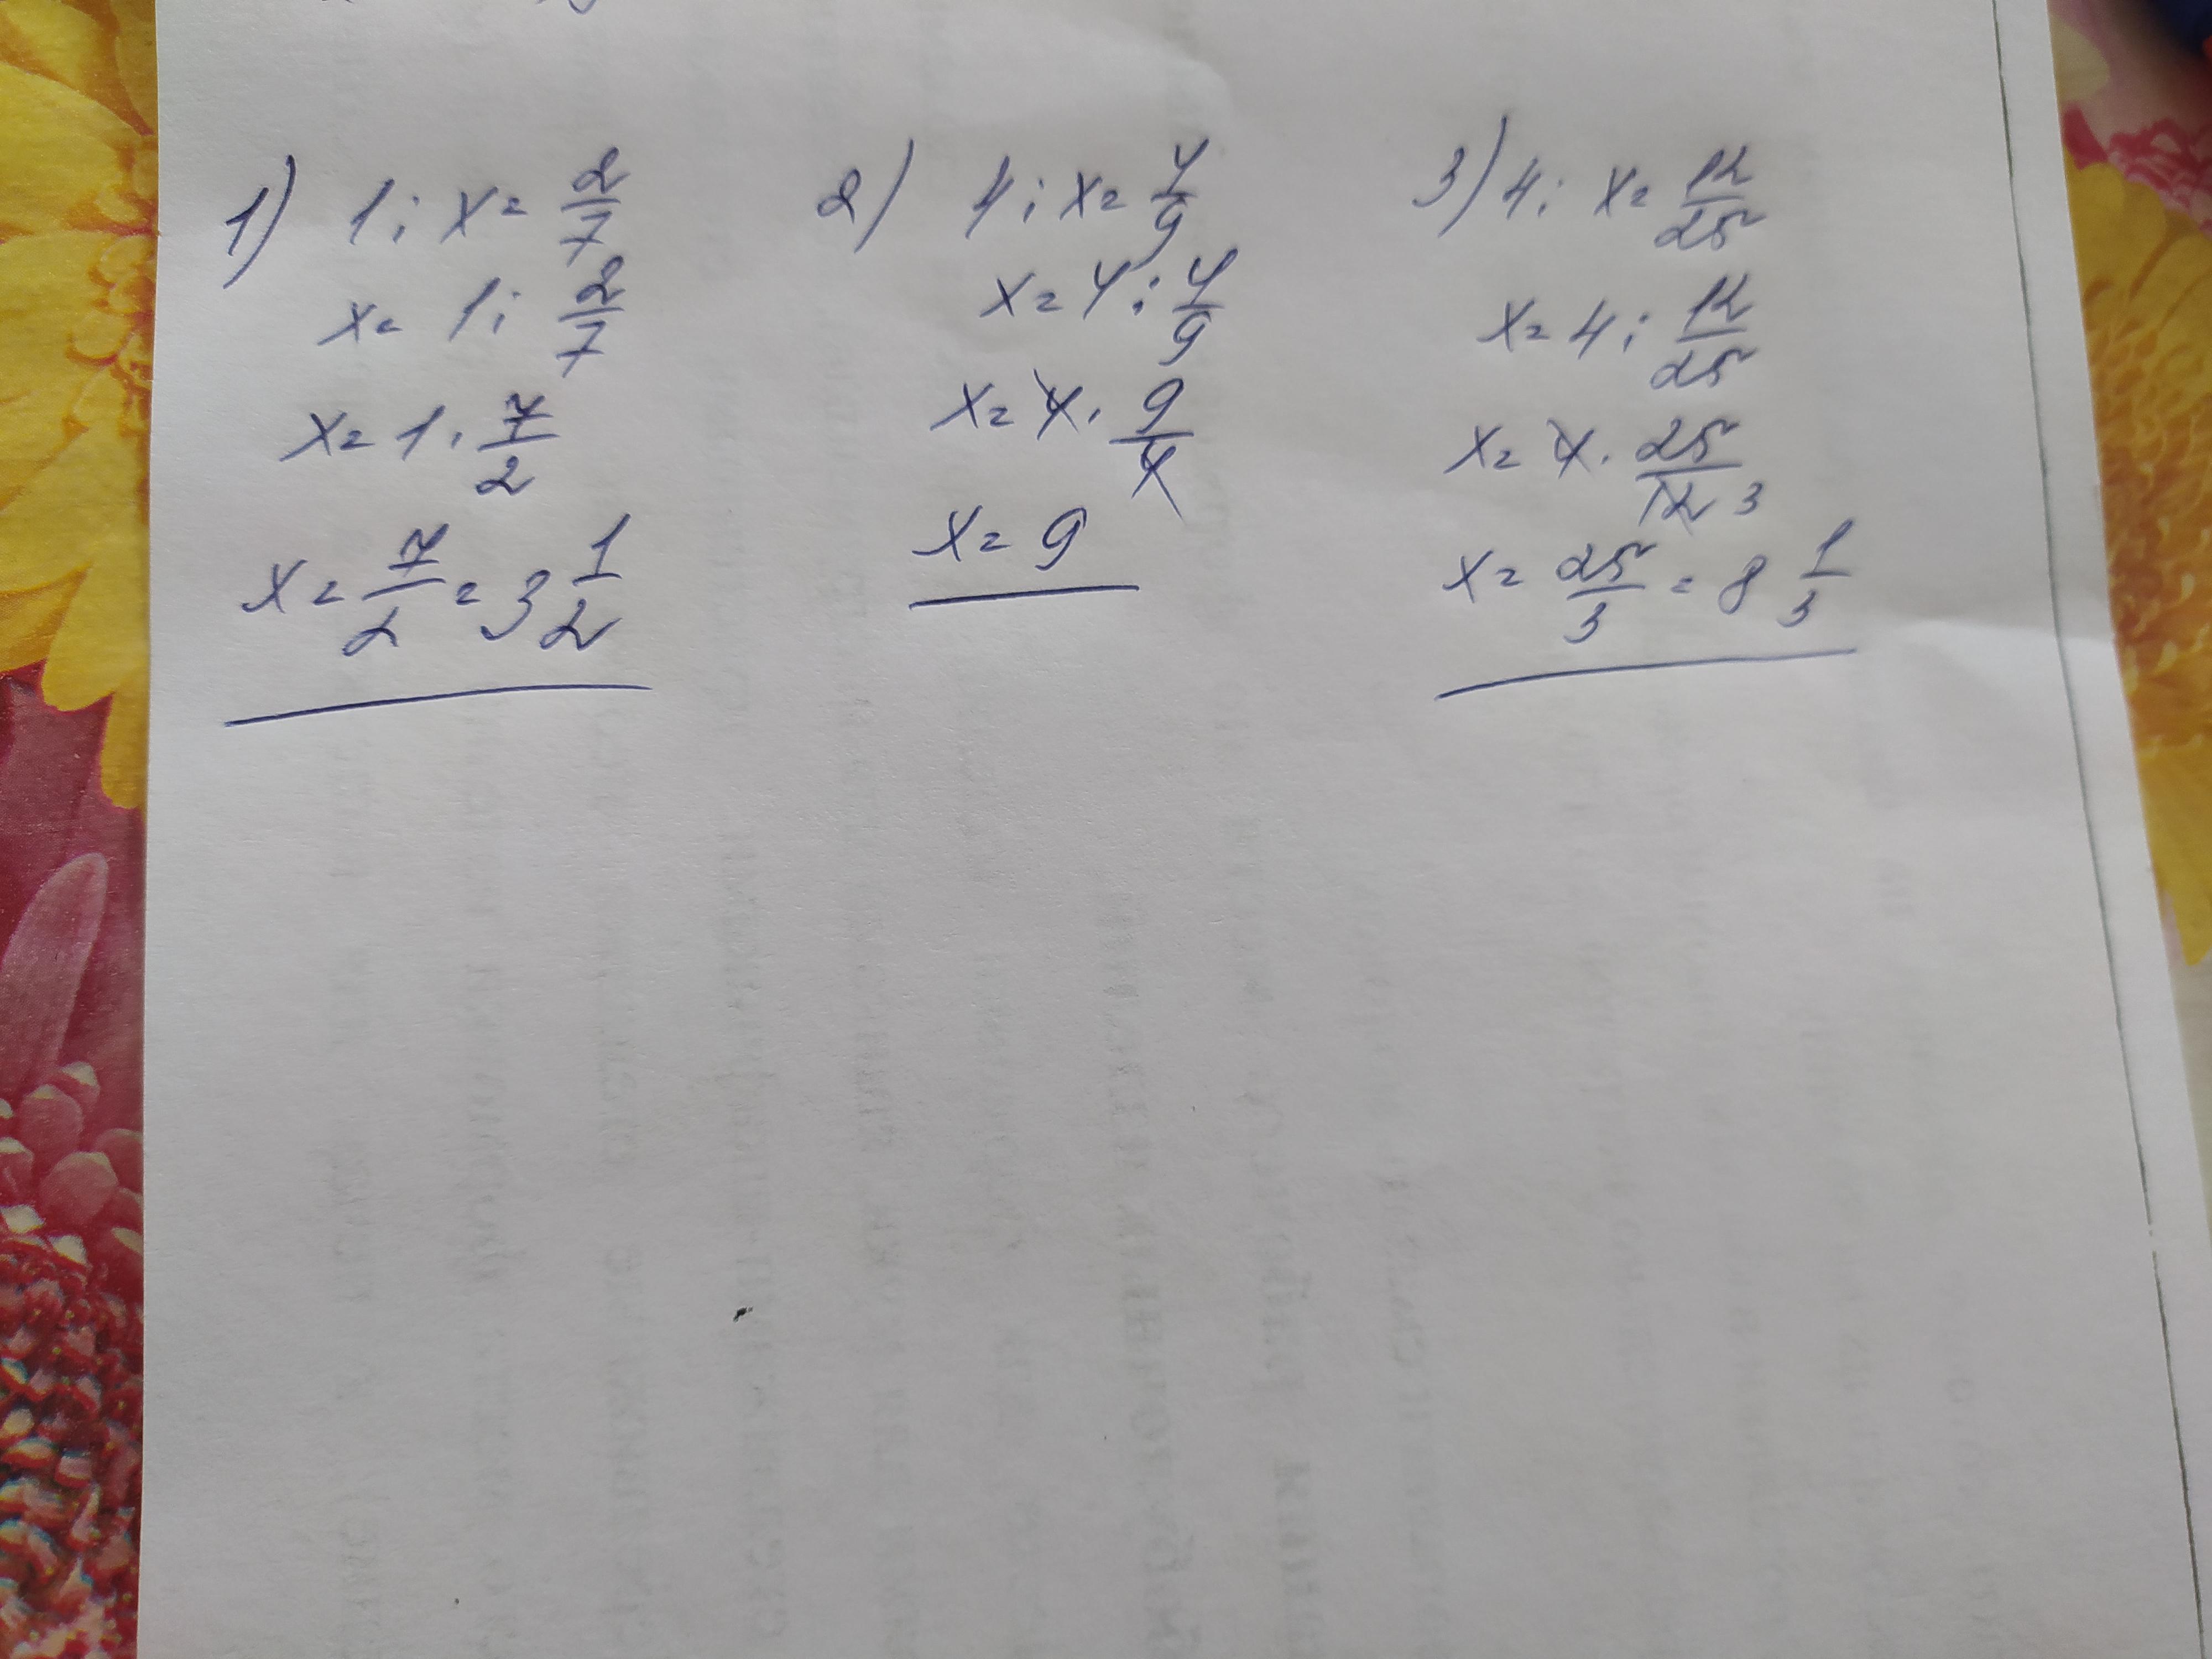 1) 1 : x = 2/7
x = 1 : 2/7
x = 1 · 7/2
x = 7/2 = 3 1/2
2) 4 : x = 4/9
x = 4 : 4/9
x = 4 · 9/4
x = 9
3) 4 : x = 12/25
x = 4 : 12/25
x = 4 · 25/12 3
x = 25/3 = 8 1/3